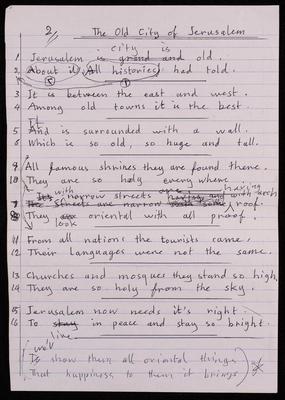 2 The Old City of Jerusalem
city is
1 Jerusalem is grand and old.
2 About it All histories had told.
3 It is between the east and west.
4 Among old towns it is the best.
It
5 And is surrounded with a wall.
6 Which is so old, so huge and tall.
9 All famous shrines they are found there.
10 They are so holy every where.
with are having
Its narrow streets with arch
7 The streets are narrow with some roof.
8 They are oriental with all proof.
look
11 From all nations the tourists came.
12 Their languages were not the same.
13 Churches and mosques they stand so high.
14 They are so holy from the sky.
15 Jerusalem now needs it's right.
16 To stay in peace and stay so bright.
live
we'll
To show them all oriental things
That happiness to them it brings